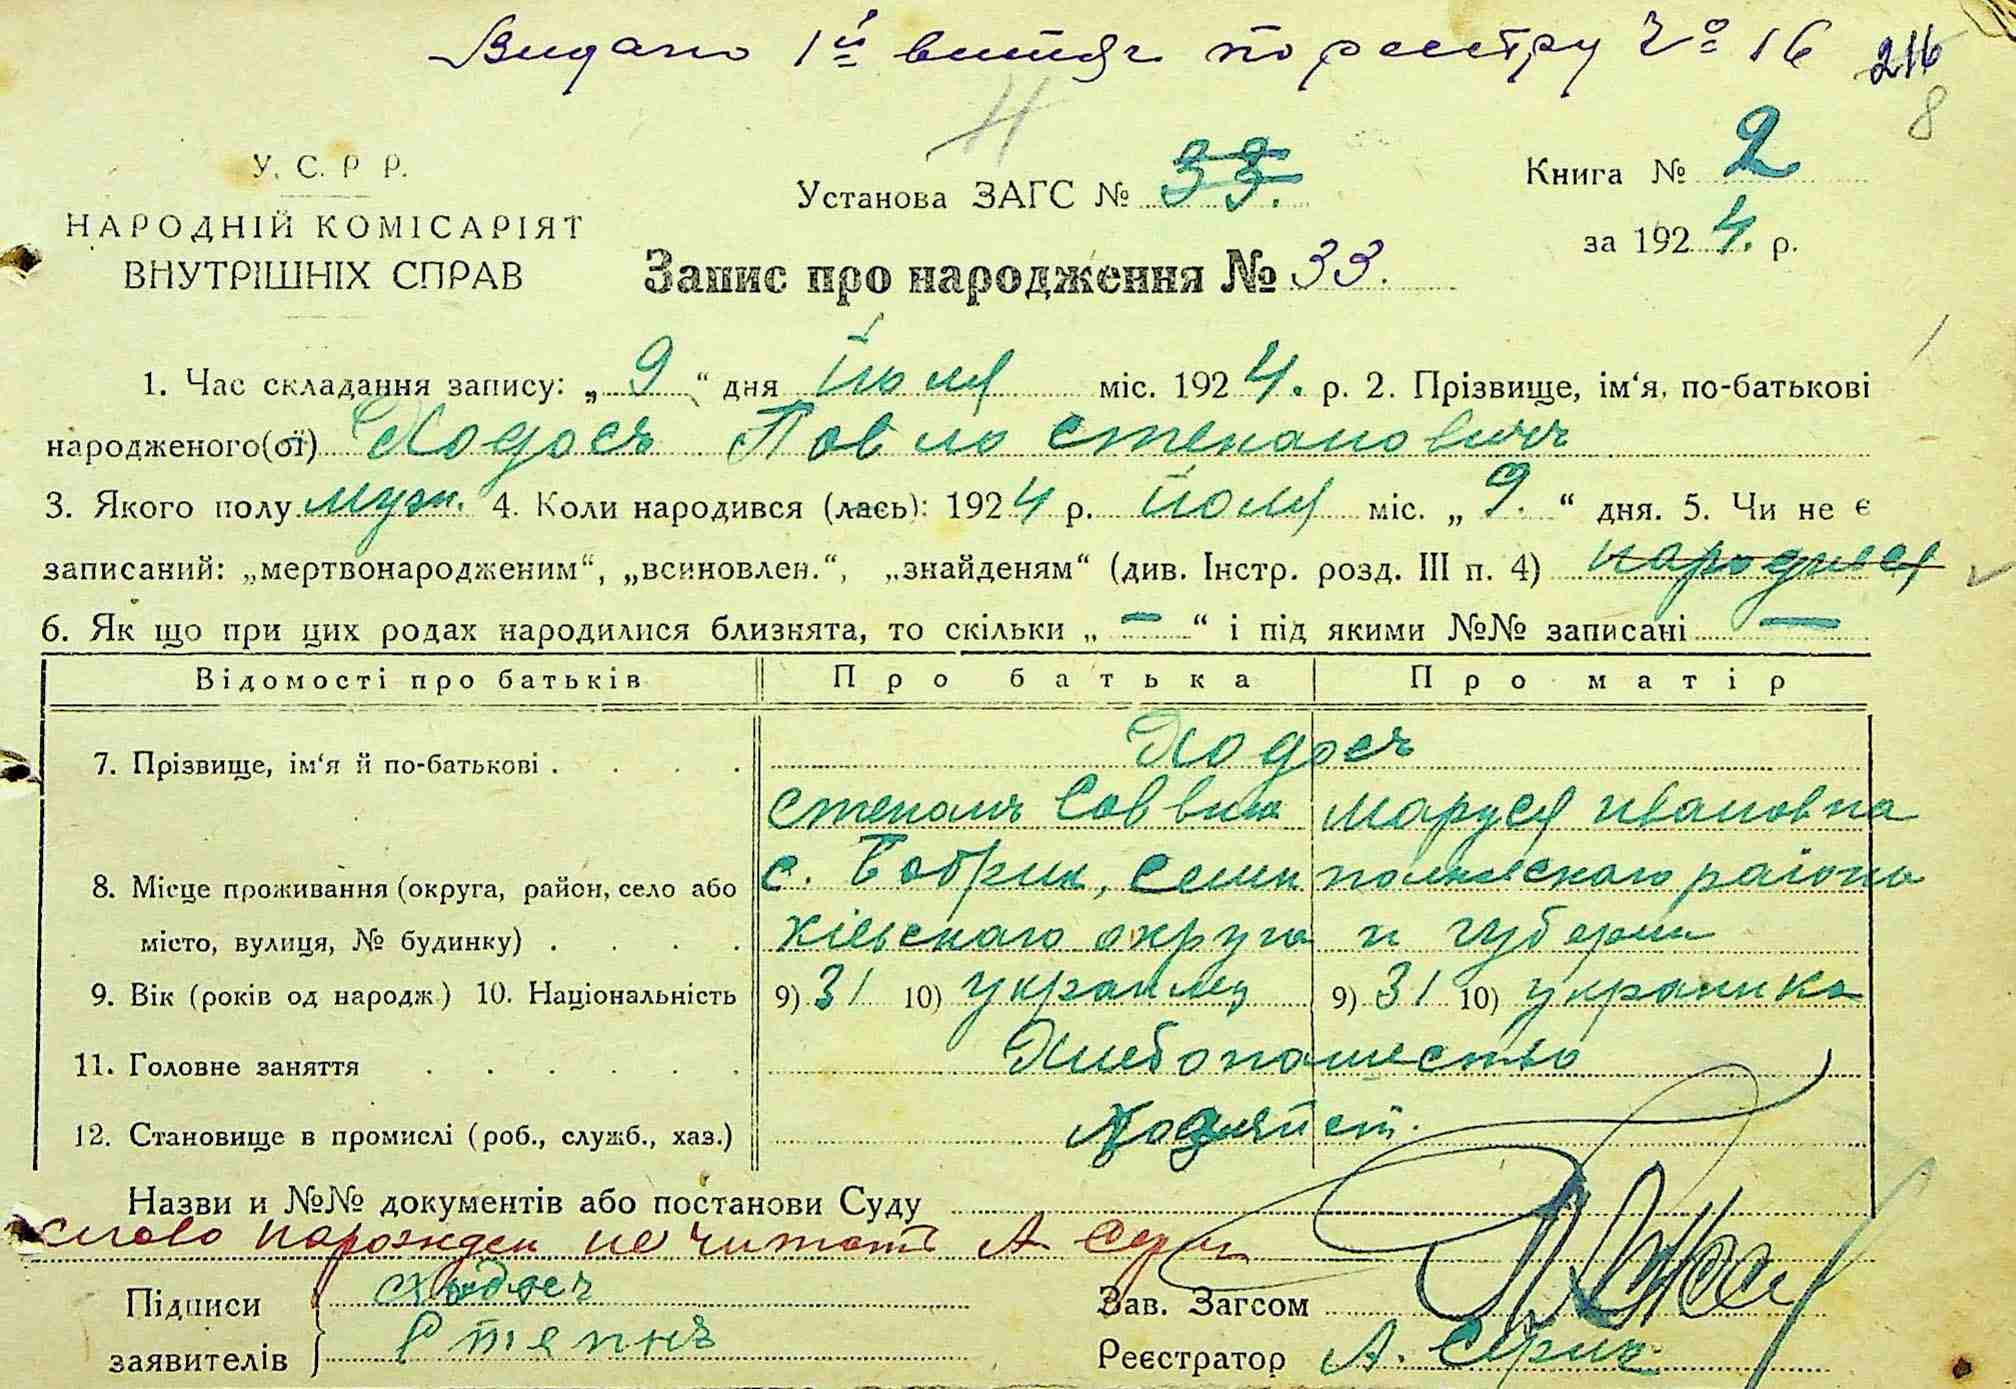 Видано 1й витяг по реестру № 16 216
8
У. С. Р Р.
НАРОДНІЙ КОМІСАРІЯТ
ВНУТРІШНІХ СПРАВ
Установа ЗАГС № 33.
Книга № 2
за 1924. р.
Запис про народження № 33.
1. Час складання запису: „ 9 “ дня Июля міс. 1924. р. 2. Прізвище, ім‘я, по-батькові
народженого(ої) Ходось Павло Степановичъ
3. Якого полу муж. 4. Коли народився (лась): 1924 р. июля міс. „ 9. “ дня. 5. Чи не є
записаний: „мертвонародженим“, „всиновлен.“, „знайденям“ (див. Інстр. розд. III п. 4) народился
6. Як що при цих родах народилися близнята, то скільки „ — “ і під якими №№ записані —
Відомості про батьків Про батька Про матір
7. Прізвище, ім‘я й по-батькові . . . . Ходосъ
Степанъ Саввич Маруся Ивановна
8. Місце проживання (округа, район, село або с. Бобрик, Семиполкаскаго района
місто, вулиця, № будинку) . . . . Кіевскаго округа и губерни
9. Вік (років од народж.) 10. Національність 9) 31 10) украинец 9) 31 10) украинка
11. Головне заняття . . . . . . Хлебопашество
12. Становище в промислі (роб., служб., хаз.) Хозяйст.
Назви и №№ документів або постанови Суду
слово нарожден не читать А Серик
Підписи Ходосъ
заявителів Степанъ
Зав. Загсом
Реєстратор А. Серик